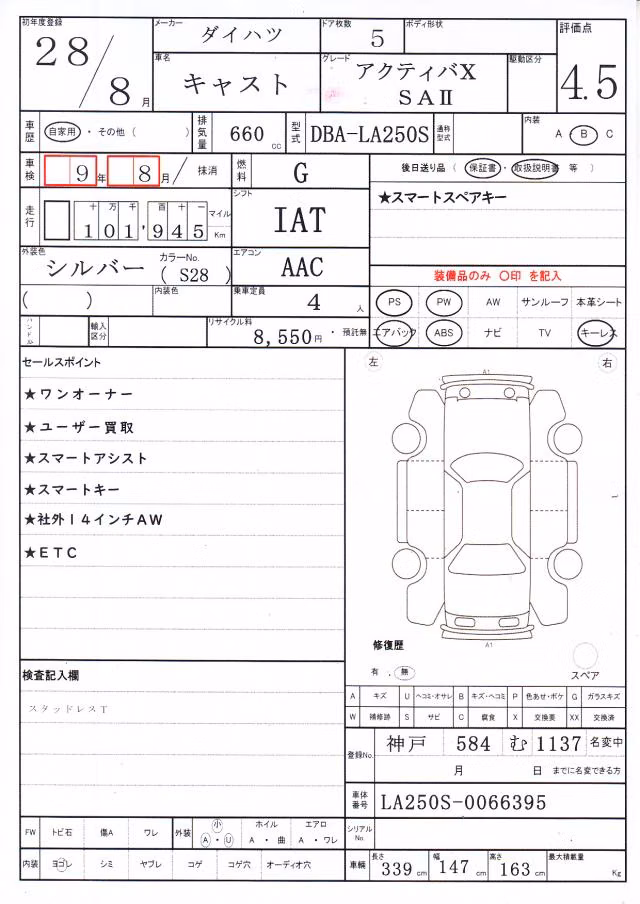 初年度登録 28/8月
メーカー ダイハツ
ドア枚数 5
ボディ形状
評価点 4.5
車名 キャスト
グレード アクティバX SAⅡ
駆動区分
車歴 自家用・その他( )
排気量 660cc
型式 DBA-LA250S
通称型式
内装 A・B C
車検 9年 8月/ 抹消
燃料 G
後日送り品(保証書・取扱説明書 等)
★スマートスペアキー
走行 十万千百十一 101,945 マイル Km
シフト IAT
外装色 シルバー カラーNo.(S28)
エアコン AAC
装備品のみ ○印 を記入
( ) 内装色
乗車定員 4人
PS PW AW サンルーフ 本革シート
ハンドル 輸入区分
リサイクル料 8,550円・預託無
エアバック ABS ナビ TV キーレス
セールスポイント
★ワンオーナー
★ユーザー買取
★スマートアシスト
★スマートキー
★社外14インチAW
★ETC
左 右
A1
A1
修復歴
有.無
スペア
検査記入欄
スタッドレスT
A キズ U ヘコミ・オサレ B キズ・ヘコミ P 色あせ・ボケ G ガラスキズ
W 補修跡 S サビ C 腐食 X 交換要 XX 交換済
登録No. 神戸 584 む 1137 名変中
月 日 までに名変できる方
車体番号 LA250S-0066395
シリアルNo.
FW トビ石 傷A ワレ 外装 小 A・U ホイル A・曲 エアロ A・ワレ
内装 ヨゴレ シミ ヤブレ コゲ コゲ穴 オーディオ穴
車輌 長さ 339cm 幅 147cm 高さ 163cm 最大積載量 Kg